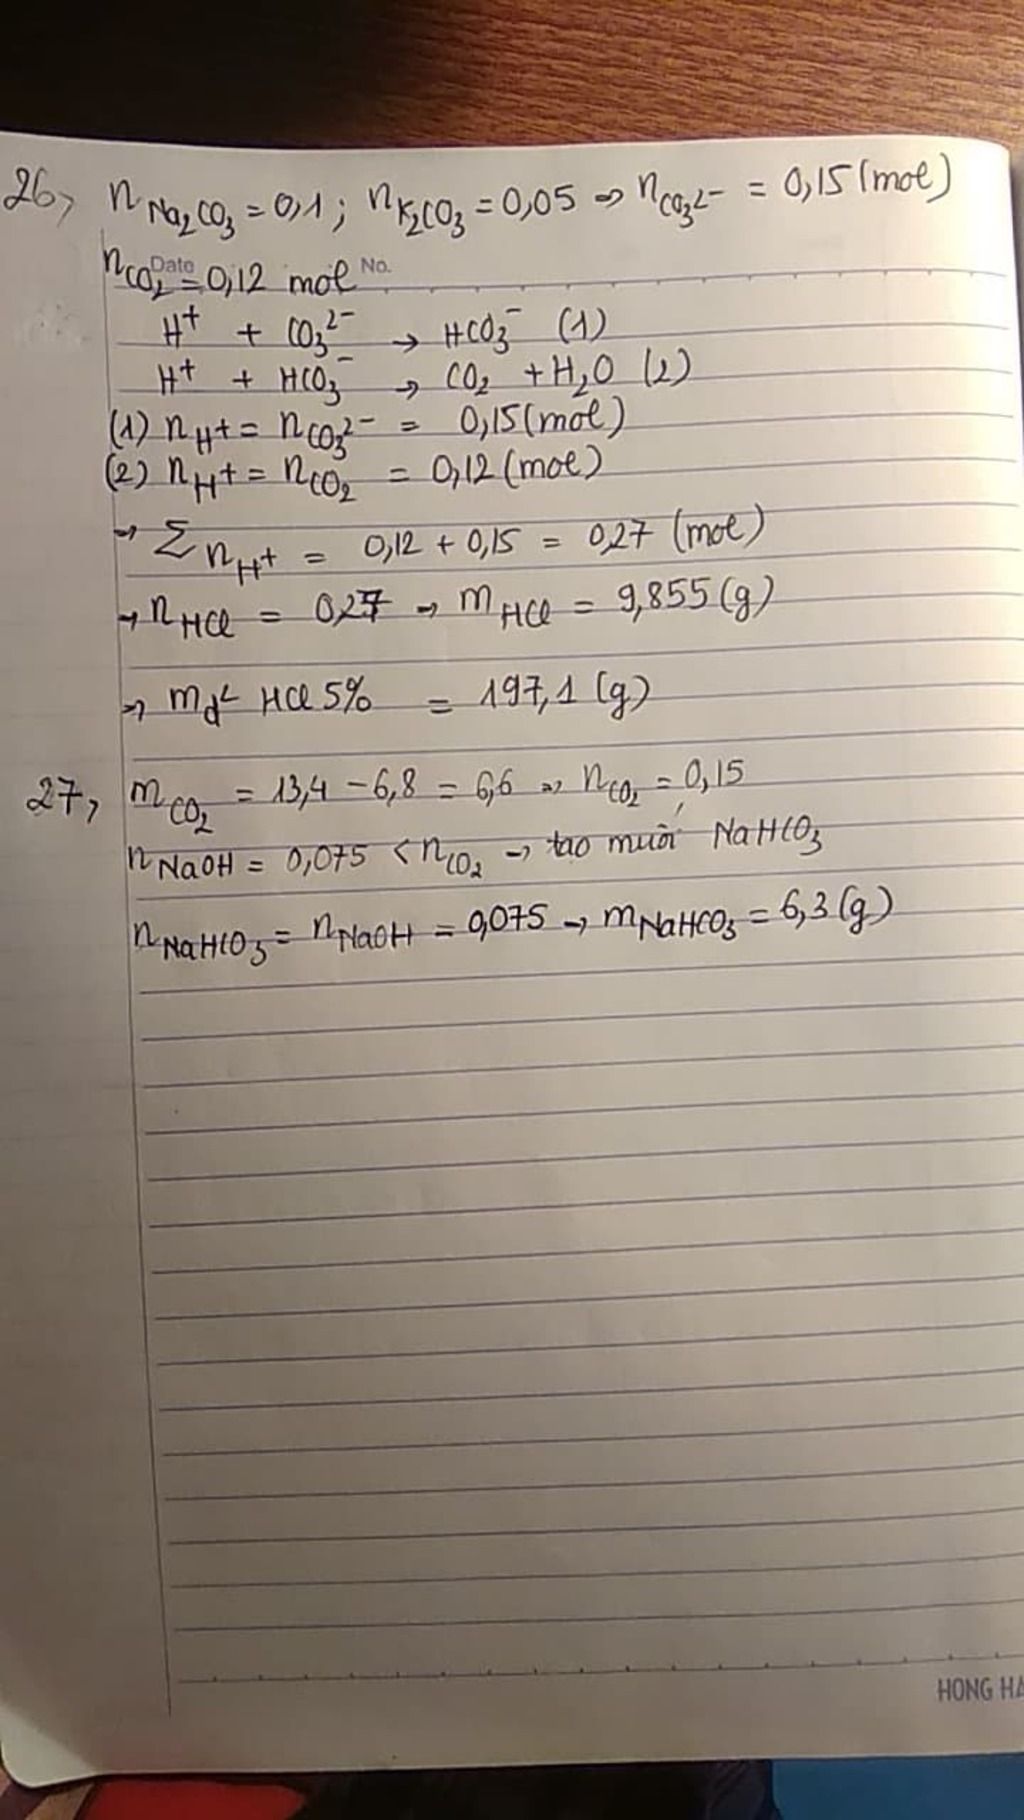 26, nNa₂CO₃ = 0,1 ; nK₂CO₃ = 0,05 → nCO₃²⁻ = 0,15 (mol)
Date No.
nCO₂ = 0,12 mol
H⁺ + CO₃²⁻ → HCO₃⁻ (1)
H⁺ + HCO₃⁻ → CO₂ + H₂O (2)
(1) nH⁺ = nCO₃²⁻ = 0,15 (mol)
(2) nH⁺ = nCO₂ = 0,12 (mol)
→ Σ nH⁺ = 0,12 + 0,15 = 0,27 (mol)
→ nHCl = 0,27 → mHCl = 9,855 (g)
→ md² HCl 5% = 197,1 (g)
27, mCO₂ = 13,4 - 6,8 = 6,6 → nCO₂ = 0,15
nNaOH = 0,075 < nCO₂ → tạo muối NaHCO₃
nNaHCO₃ = nNaOH = 0,075 → mNaHCO₃ = 6,3 (g)
HONG HA